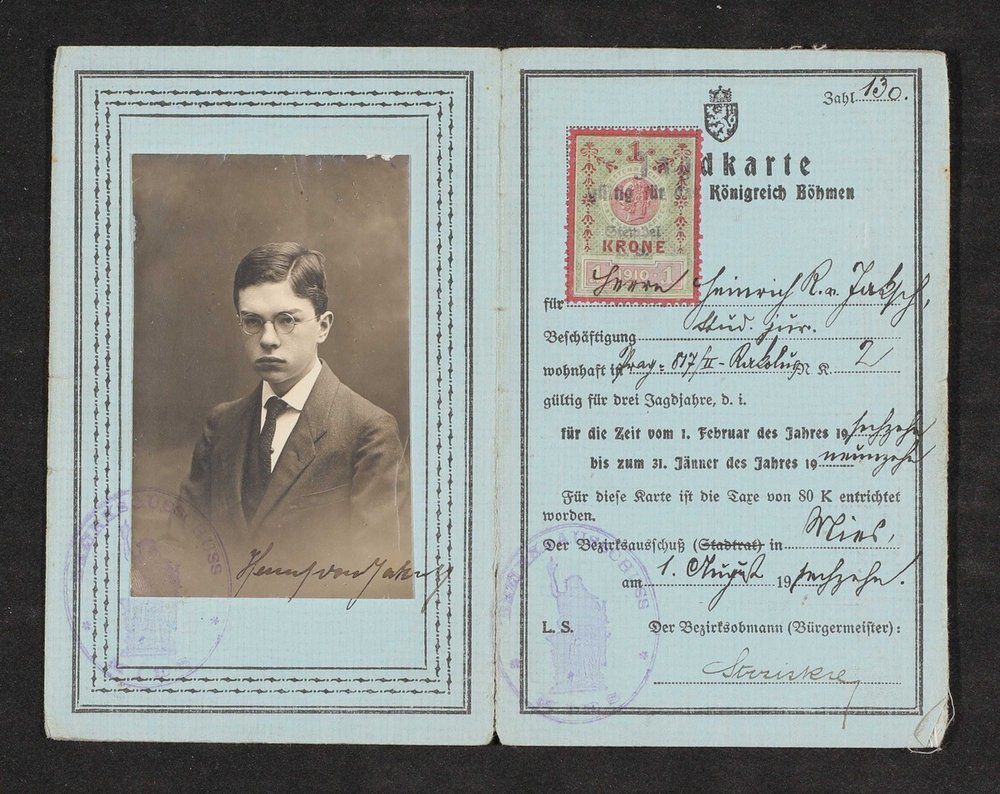 Heinrich von Jaksch
BEZIRKSAUSSCHUSS
MIES
Zahl 130.
Jagdkarte
gültig für das Königreich Böhmen
1
Stempel
KRONE
1910
1
für Herrn Heinrich R. v. Jaksch,
Beschäftigung stud. jur.
wohnhaft in Prag - 817/II - N K. 2
gültig für drei Jagdjahre, d. i.
für die Zeit vom 1. Februar des Jahres 19 sechzehn
bis zum 31. Jänner des Jahres 19 neunzehn
Für diese Karte ist die Taxe von 80 K entrichtet
worden.
Der Bezirksausschuß (Stadtrat) in Mies,
am 1. August 19 sechzehn.
L. S. Der Bezirksobmann (Bürgermeister):
BEZIRKSAUSSCHUSS
MIES